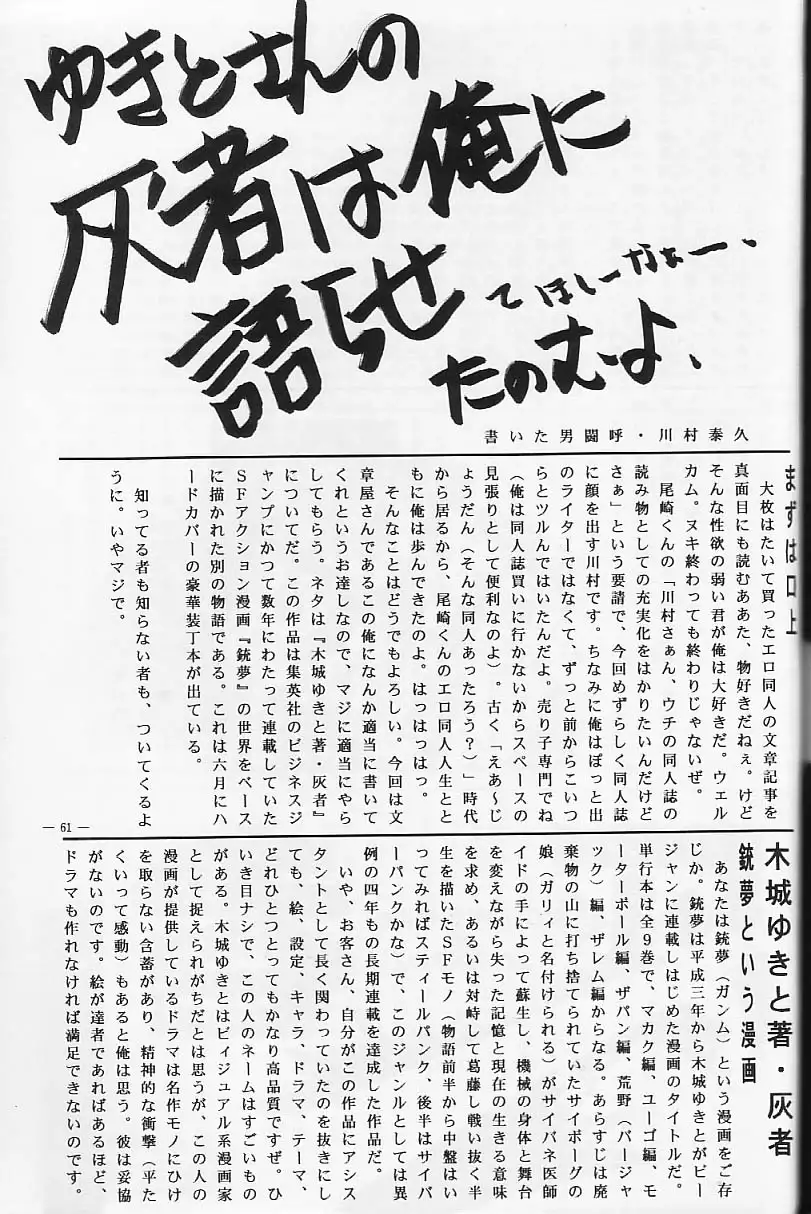 ゆきとさんの
灰者は俺に
語らせ
てほしーなぁー、
たのむよ、
書いた男闘呼・川村泰久
まずは口上
大枚はたいて買ったエロ同人の文章記事を
真面目にも読むああた、物好きだねぇ。けど
そんな性欲の弱い君が俺は大好きだ。ウェル
カム。ヌキ終わっても終わりじゃないぜ。
尾崎くんの「川村さぁん、ウチの同人誌の
読み物としての充実化をはかりたいんだけど
さぁ」という要請で、今回めずらしく同人誌
に顔を出す川村です。ちなみに俺はぽっと出
のライターではなくて、ずっと前からこいつ
らとツルんではいたんだよ。売り子専門でね
（俺は同人誌買いに行かないからスペースの
見張りとして便利なのよ）。古く「えあ～じ
ょうだん（そんな同人あったろう？）」時代
から居るから、尾崎くんのエロ同人人生とと
もに俺は歩んできたのよ。はっはっはっ。
そんなことはどうでもよろしい。今回は文
章屋さんであるこの俺になんか適当に書いて
くれというお達しなので、マジに適当にやら
してもらう。ネタは『木城ゆきと著・灰者』
についてだ。この作品は集英社のビジネスジ
ャンプにかつて数年にわたって連載していた
ＳＦアクション漫画『銃夢』の世界をベース
に描かれた別の物語である。これは六月にハ
ードカバーの豪華装丁本が出ている。
知ってる者も知らない者も、ついてくるよ
うに。いやマジで。
― 61 ―
木城ゆきと著・灰者
銃夢という漫画
あなたは銃夢（ガンム）という漫画をご存
じか。銃夢は平成三年から木城ゆきとがビー
ジャンに連載しはじめた漫画のタイトルだ。
単行本は全９巻で、マカク編、ユーゴ編、モ
ーターボール編、ザパン編、荒野（バージャ
ック）編、ザレム編からなる。あらすじは廃
棄物の山に打ち捨てられていたサイボーグの
娘（ガリィと名付けられる）がサイバネ医師
イドの手によって蘇生し、機械の身体と舞台
を変えながら失った記憶と現在の生きる意味
を求め、あるいは対峙して葛藤し戦い抜く半
生を描いたＳＦモノ（物語前半から中盤はい
ってみればスティールパンク、後半はサイバ
ーパンクかな）で、このジャンルとしては異
例の四年もの長期連載を達成した作品だ。
いや、お客さん、自分がこの作品にアシス
タントとして長く関わっていたのを抜きにし
ても、絵、設定、キャラ、ドラマ、テーマ、
どれひとつとってもかなり高品質ですぜ。ひ
いき目ナシで、この人のネームはすごいもの
がある。木城ゆきとはビィジュアル系漫画家
として捉えられがちだとは思うが、この人の
漫画が提供しているドラマは名作モノにひけ
を取らない含蓄があり、精神的な衝撃（平た
くいって感動）もあると俺は思う。彼は妥協
がないのです。絵が達者であればあるほど、
ドラマも作れなければ満足できないのです。